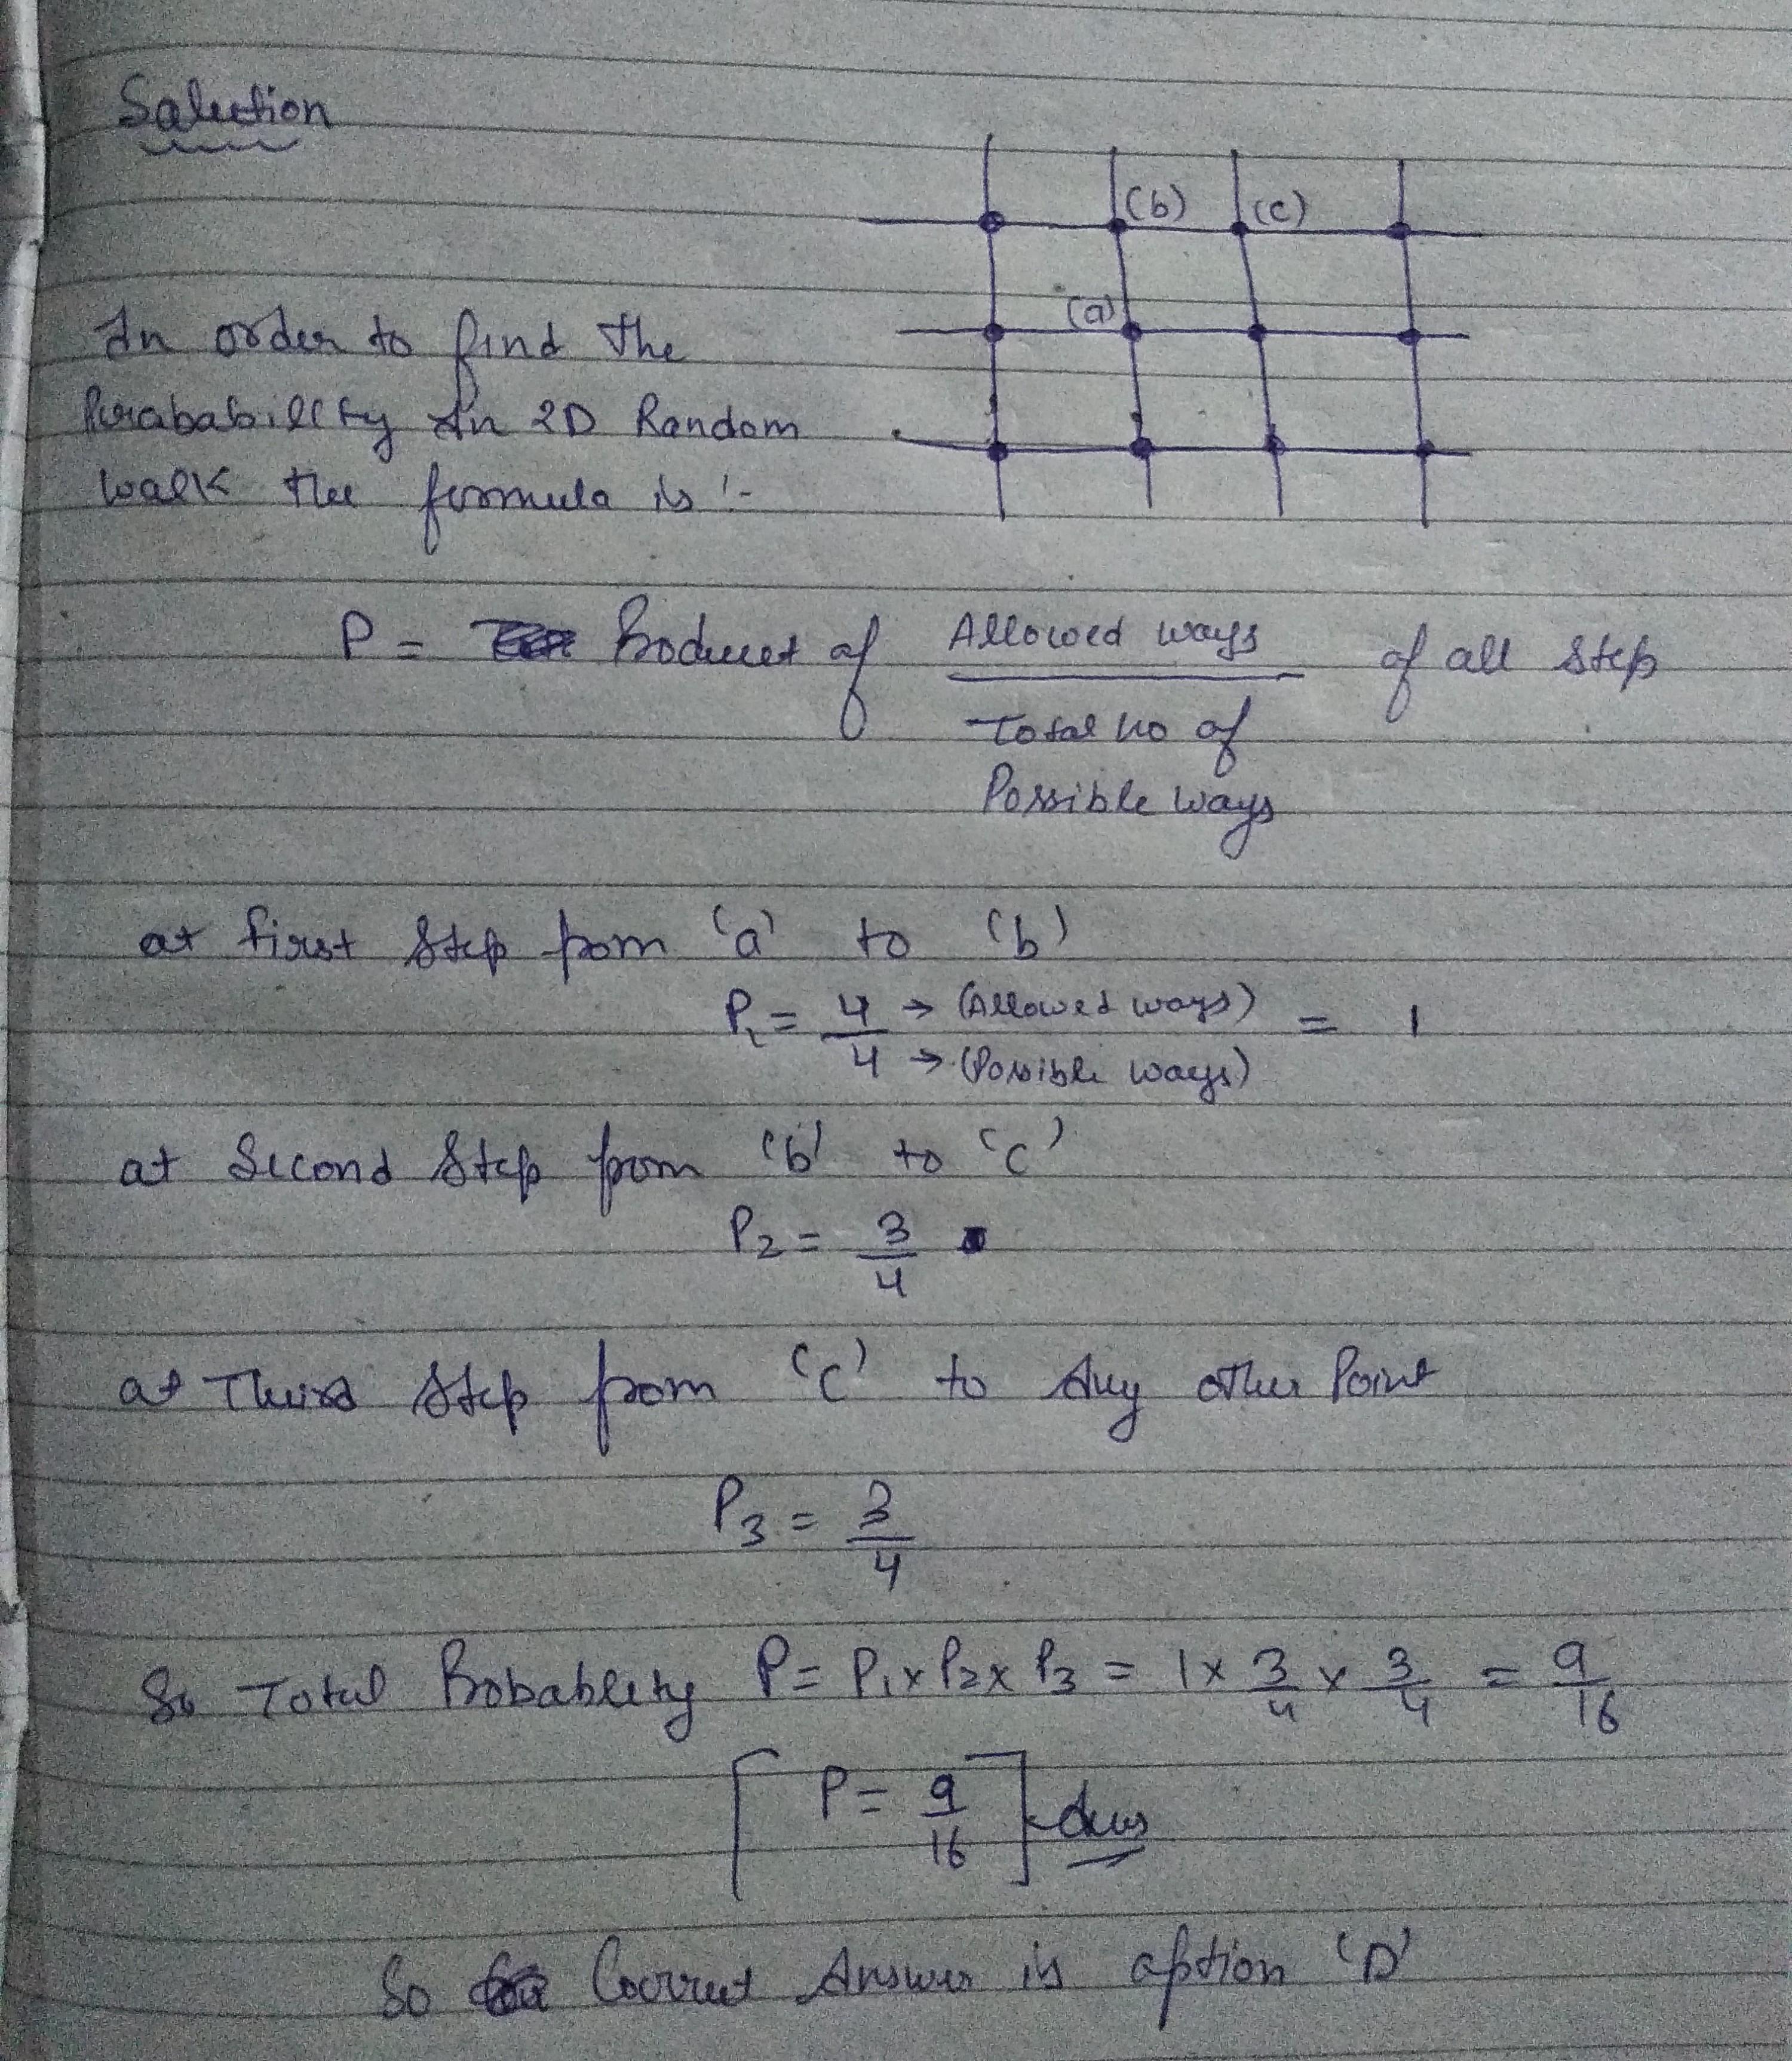 Solution
(b) (c)
(a)
In order to find the
Probability In 2D Random
walk the formula is :-
P = Product of Allowed ways of all step
Total no of
Possible ways
at first step from 'a' to (b)
P1 = 4 → (Allowed ways) = 1
4 → (Possible ways)
at Second Step from 'b' to 'c'
P2 = 3
4
at Third Step from 'c' to Any other Point
P3 = 3
4
So Total Probablity P = P1 x P2 x P3 = 1 x 3/4 x 3/4 = 9/16
P = 9/16 Ans
So Correct Answer is option 'D'